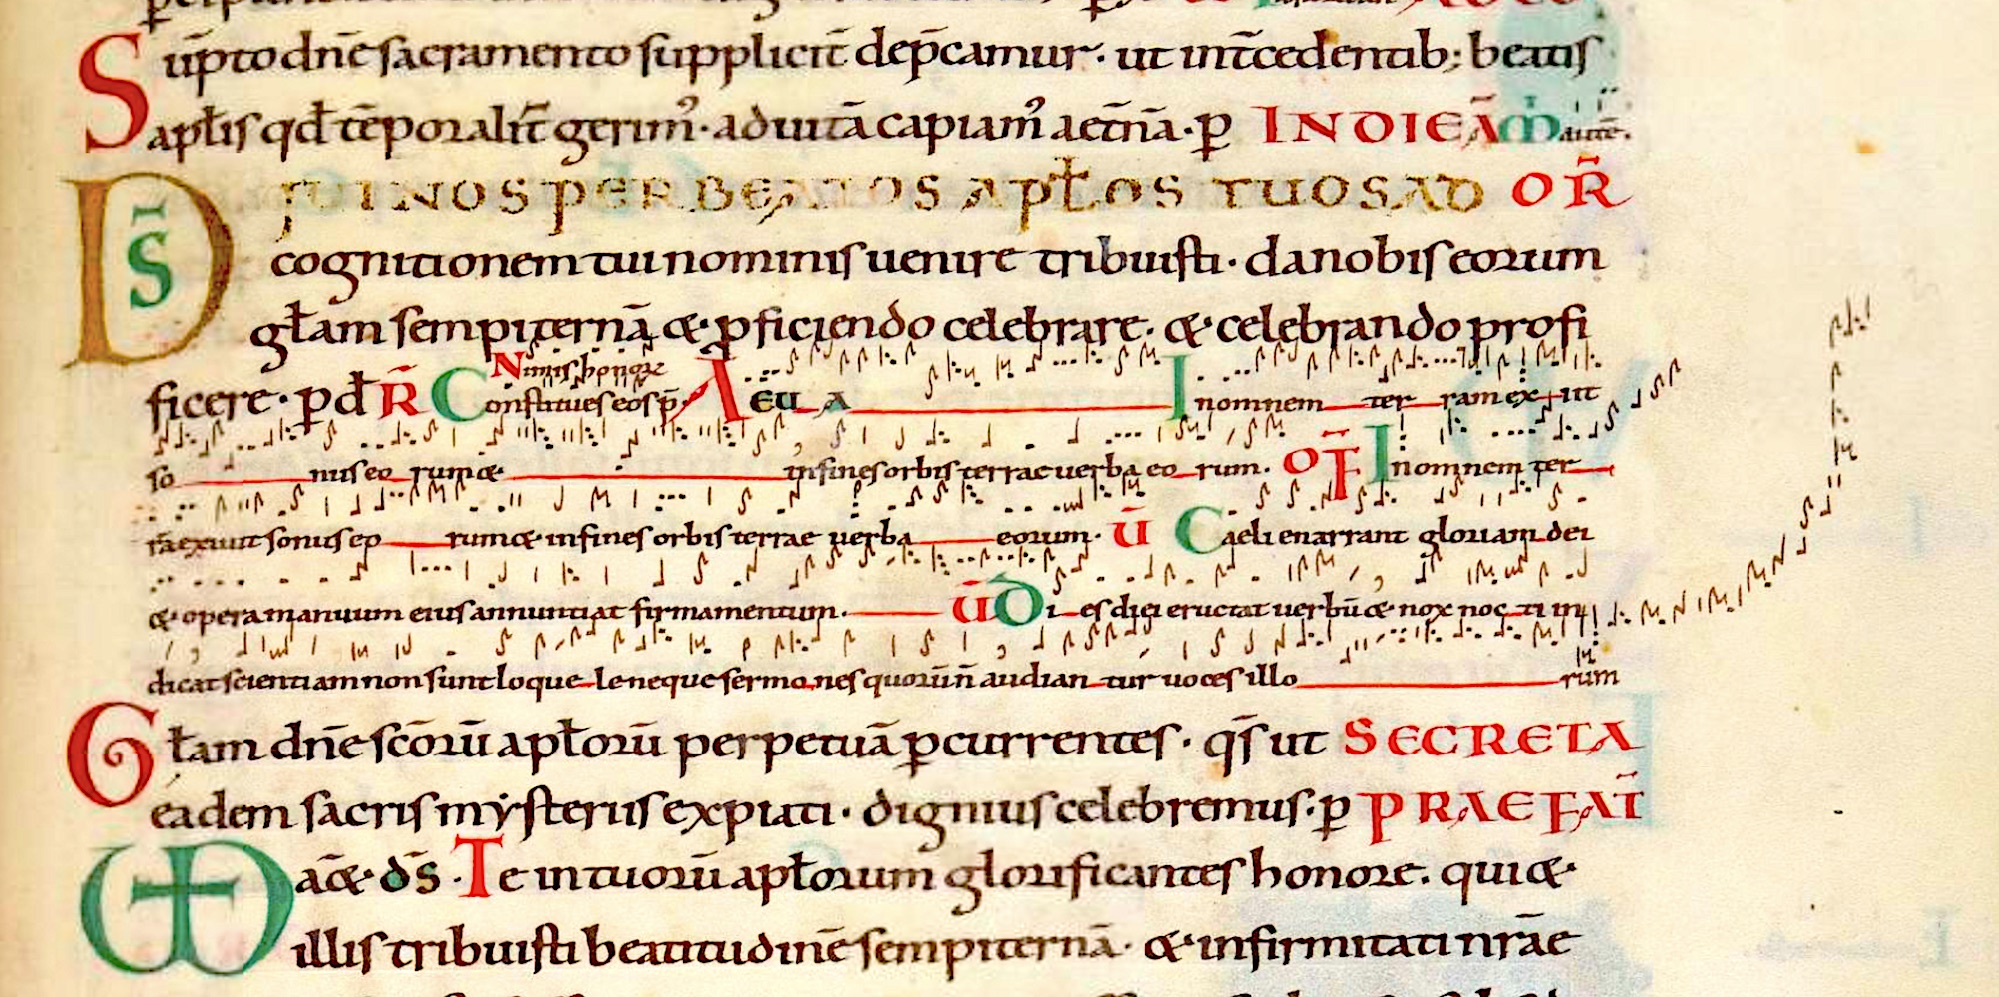 Sūpto dn̄e sacramento supplicit̄ dep̄camur · ut int̄cedentib; beatis
apłis qd̄ tēporalit̄ gerim᾽ · ad uitā capiam᾽ aet̄nā · p̱ IN DIE AD
DS̄ QUI NOS PER BEATOS APŁOS TUOS AD OR̄
cognitionem tui nominis uenire tribuisti · da nobis eorum
głam sempiternā & p̱ficiendo celebrare · & celebrando profi
Nimis honore
ficere · p̱ d̄ R̄ Constitues eos p̄ AEUA In omnem ter ram exiuit
so nus eo rum & in fines orbis terrae uerba eo rum · OF̄ In omnem ter
rā exiuit sonus eo rum & in fines orbis terrae uerba eorum · Ū Caeli enarrant gloriam dei
& opera manuum eius annuntiat firmamentum · Ū Di es diei eructat uerbū & nox noc ti in
dicat scientiam non sunt loque lę neque sermo nes quorū n̄ audian tur uoces illo rum
Głam dn̄e sc̄orū apłorū perpetuā p̱currentes · qs̄ ut SECRETA
eadem sacris mẏsteriis expiati · dignius celebremus · p̱ PRAEFAT̄
UD āe& · ds̄ · Te in tuorū apłorum glorificantes honore · qui &
illis tribuisti beatitudinē sempiternā · & infirmitati nrāe